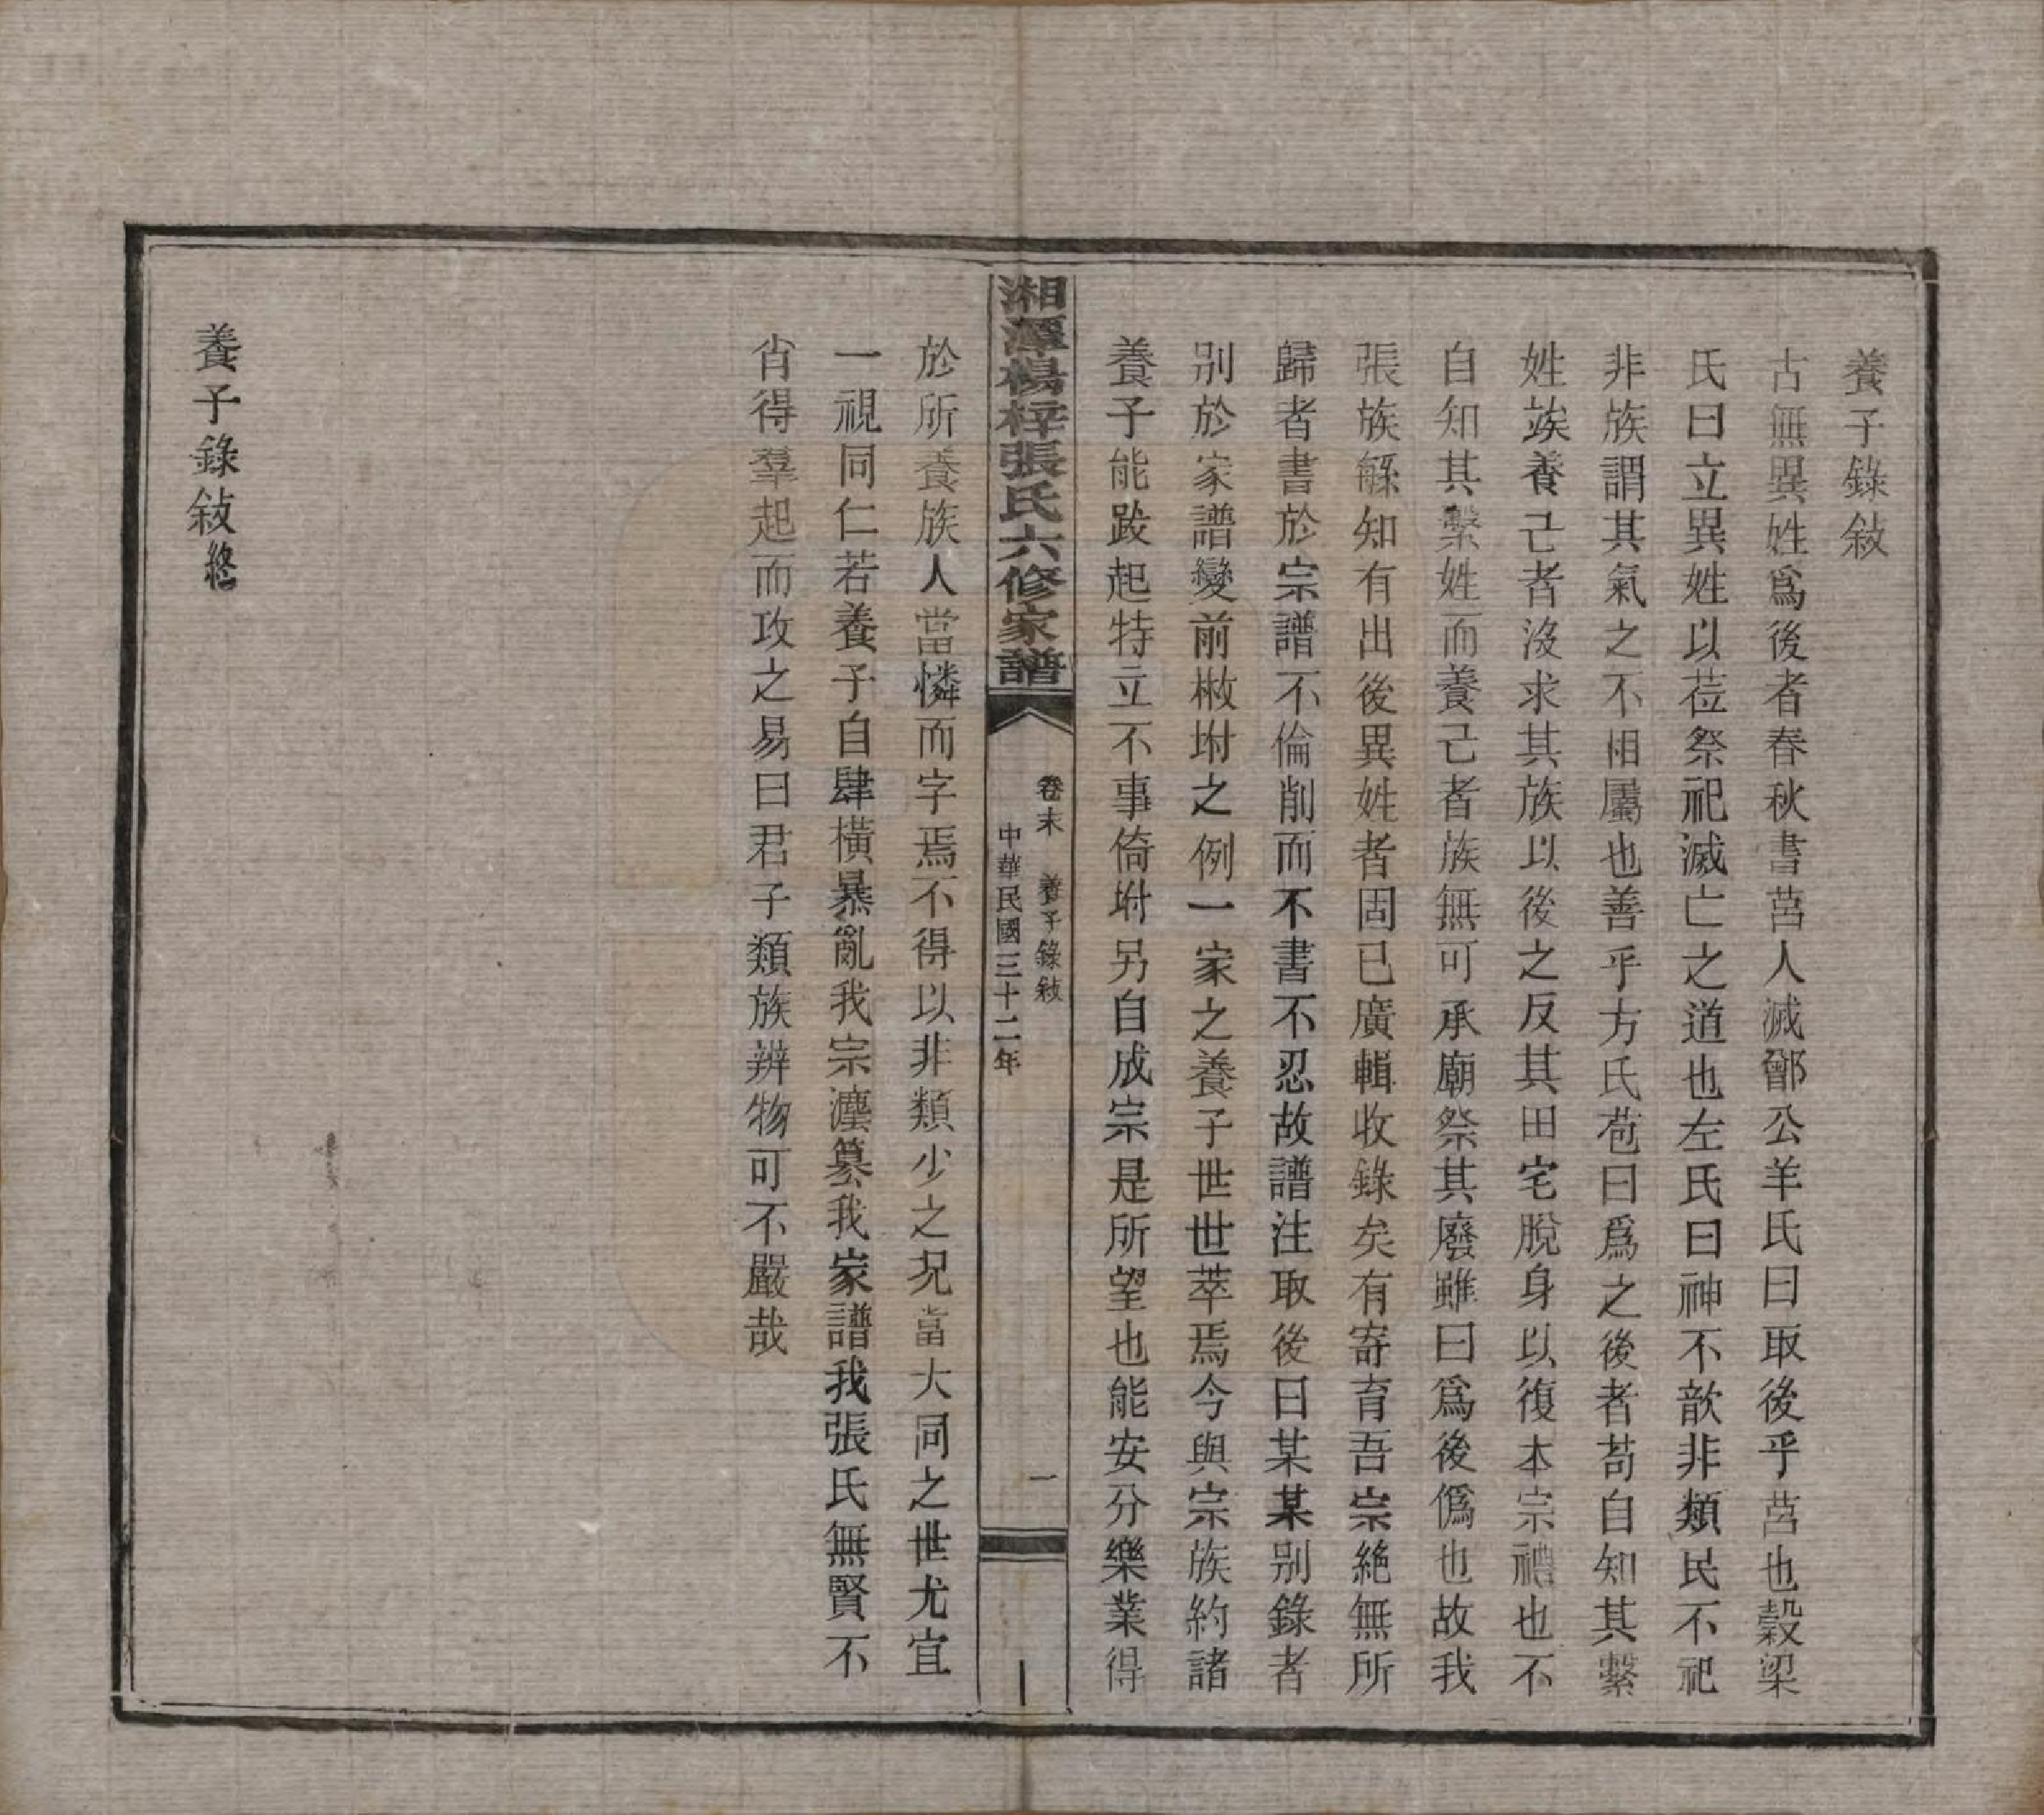 養子錄敍
古無異姓爲後者春秋書莒人滅鄫公羊氏曰取後乎莒也榖梁
氏曰立異姓以莅祭祀滅亡之道也左氏曰神不歆非類民不祀
非族謂其氣之不相屬也善乎方氏苞曰爲之後者苟自知其繫
姓竢養己者沒求其族以後之反其田宅脫身以復本宗禮也不
自知其繫姓而養己者族無可承廟祭其廢雖曰爲後僞也故我
張族緜知有出後異姓者固已廣輯收錄矣有寄育吾宗絶無所
歸者書於宗譜不倫削而不書不忍故譜注取後曰某某別錄者
別於家譜變前檄坿之例一家之養子世世萃焉今與宗族約諸
養子能跋起特立不事倚坿另自成宗是所望也能安分樂業得
湘潭楊梓張氏六修家譜
卷末 養子錄敍
一
中華民國三十二年
於所養族人當憐而字焉不得以非類少之况當大同之世尤宜
一視同仁若養子自肆橫暴亂我宗瀍篡我家譜我張氏無賢不
肖得羣起而攻之易曰君子類族辨物可不嚴哉
養子錄敍終